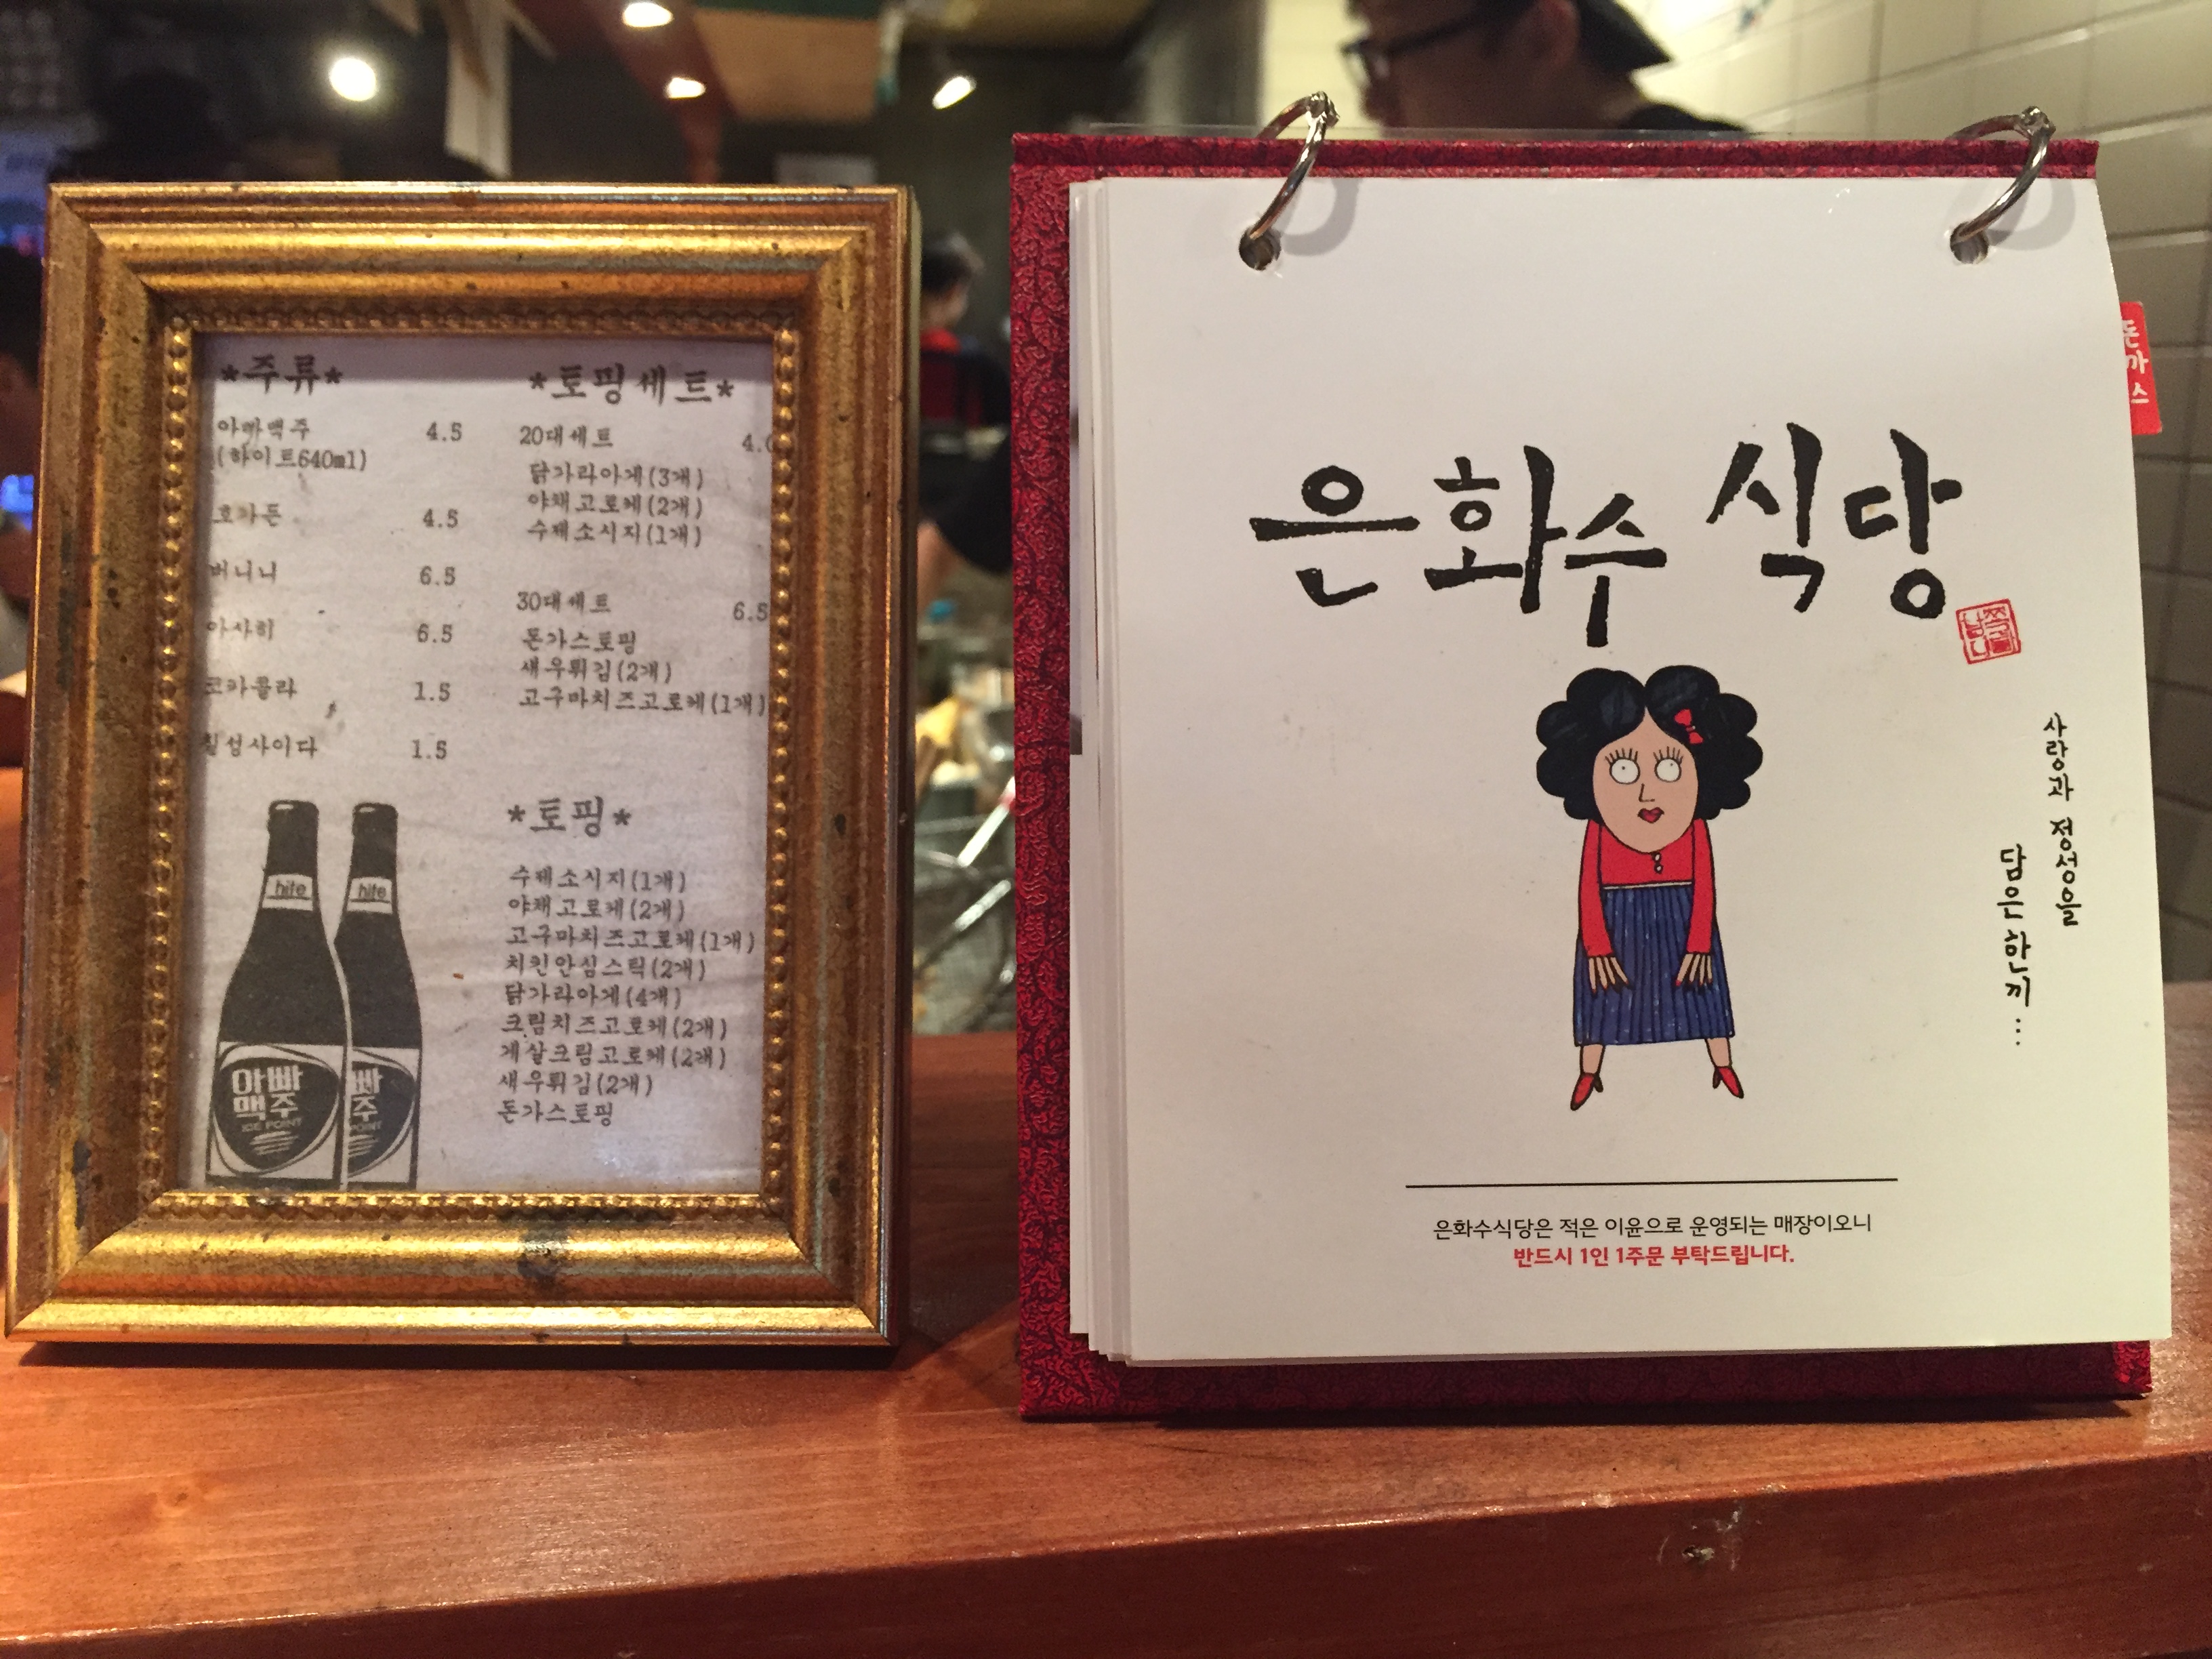 *주류*
아빠맥주 4.5
(하이트640ml)
호가든 4.5
버니니 6.5
아사히 6.5
코카콜라 1.5
칠성사이다 1.5
hite
hite
아빠
맥주
ICE POINT
빠
주
POINT
*토핑세트*
20대세트 4.0
닭가라아게(3개)
야채고로케(2개)
수제소시지(1개)
30대세트 6.5
돈가스토핑
새우튀김(2개)
고구마치즈고로케(1개)
*토핑*
수제소시지(1개)
야채고로케(2개)
고구마치즈고로케(1개)
치킨안심스틱(2개)
닭가라아게(4개)
크림치즈고로케(2개)
게살크림고로케(2개)
새우튀김(2개)
돈가스토핑
은화수 식당
사랑과 정성을
담은 한끼...
은화수식당은 적은 이윤으로 운영되는 매장이오니
반드시 1인 1주문 부탁드립니다.
돈까스